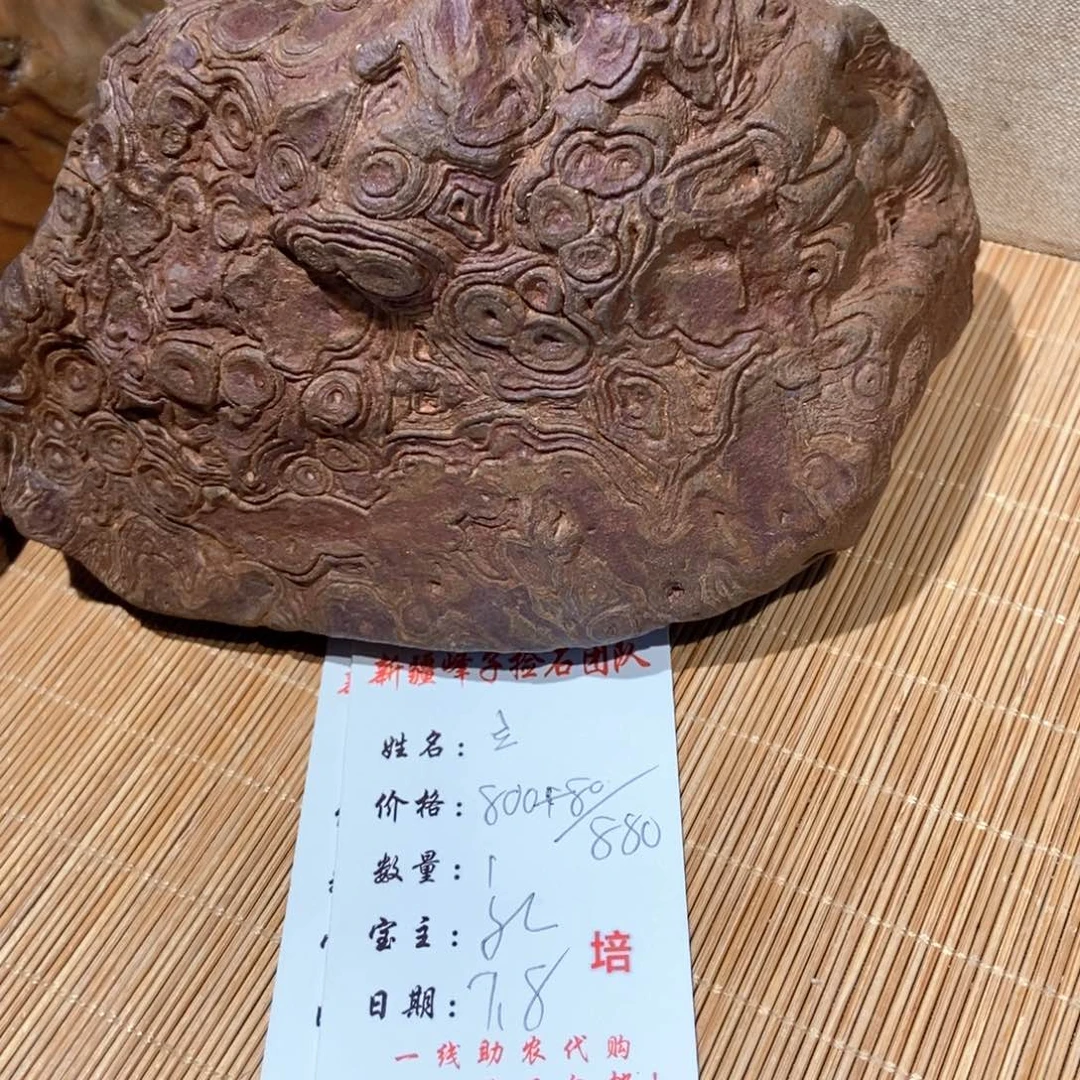 新疆峰子捡石团队
姓名：
价格：800+80/880
数量：1
宝主：
培
日期：7.8
一线助农代购